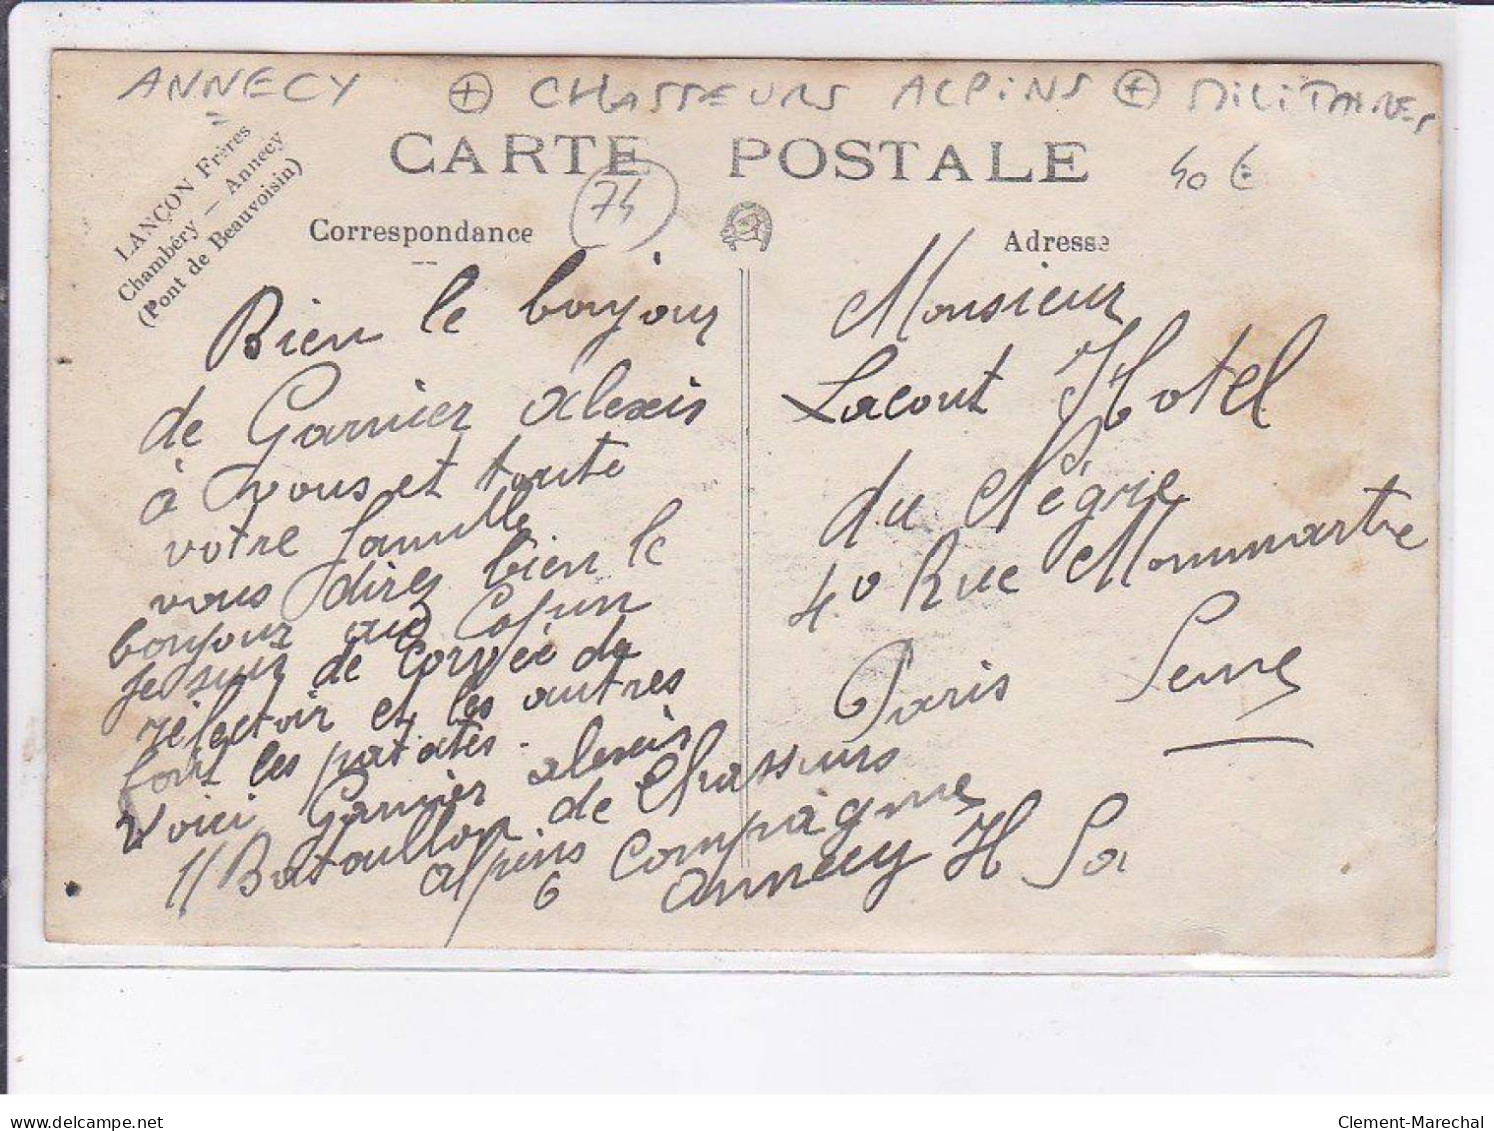 ANNECY + CHASSEURS ALPINS + MILITAIRES
CARTE POSTALE
40 €
LANÇON Frères
Chambéry — Annecy
(Pont de Beauvoisin)
74
Correspondance
Bien le bonjour
de Garnier alexis
à vous et toute
votre famille
vous direz bien le
bonjour aux
Je suis de Corvée de
refectoir et les autres
font les patates.
Voici Garnier alexis
11 Bataillon de Chasseurs
alpins 6 Compagnie
annecy H Sa
Adresse
Monsieur
Lacout Hotel
du Nègre
40 Rue Monmartre
Paris Seine
delcampe.net
Clement-Marechal